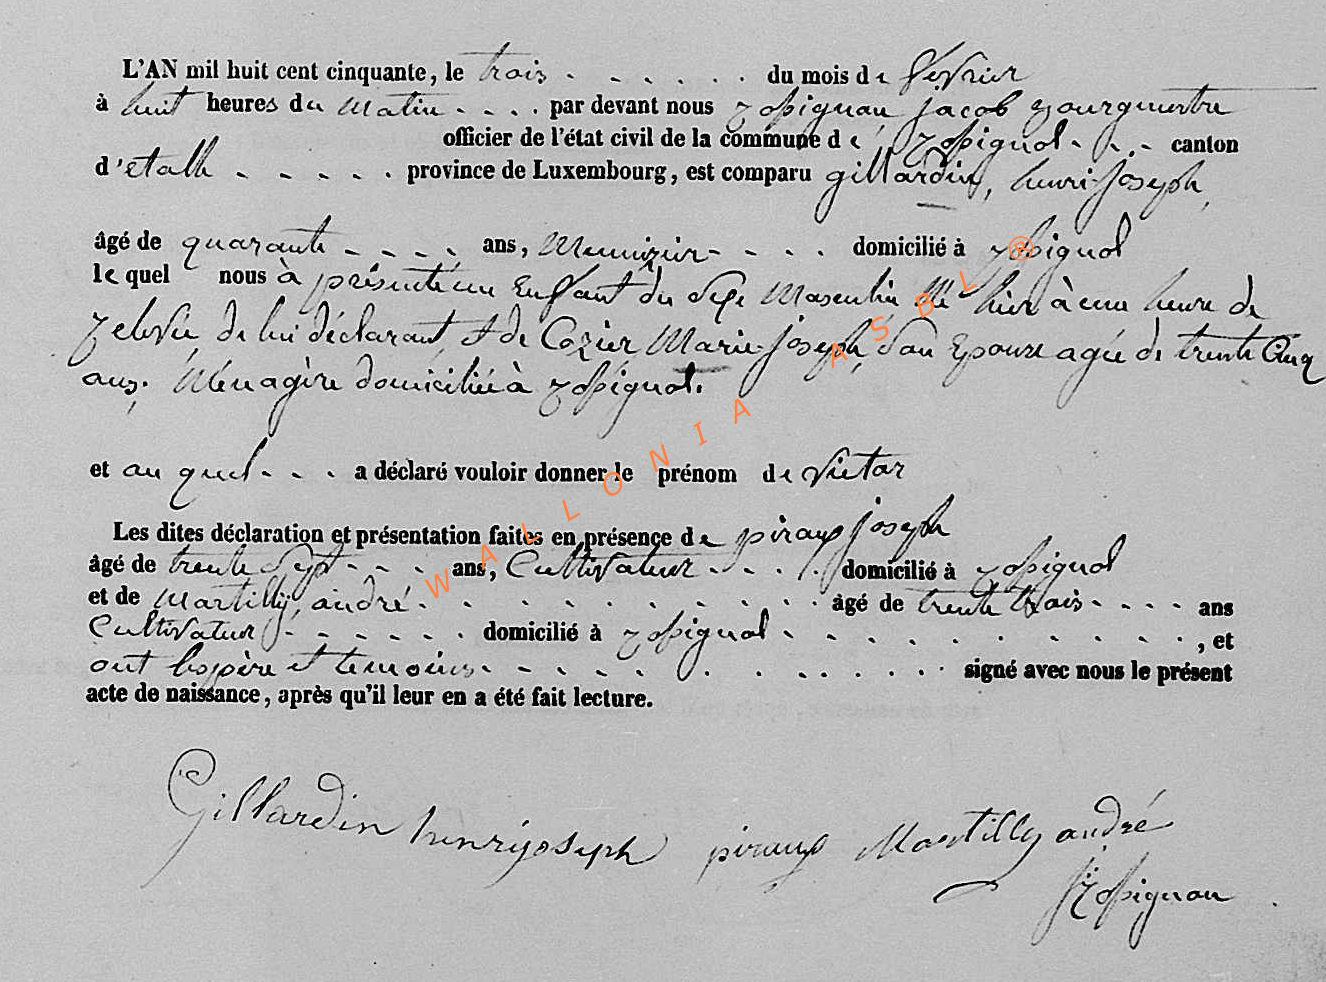 L'AN mil huit cent cinquante, le trois . - - - - . . du mois de février
à huit heures du matin - - - . par devant nous Rossignon jacob Bourgmestre
officier de l'état civil de la commune de Rossignol - - . - canton
d'etalle - - - - . province de Luxembourg, est comparu gillardin, henri-joseph,
âgé de quarante - - - - ans, Menuizier - - - . domicilié à Rossignol
le quel nous à présenté un Enfant du Sexe Masculin Né hier à une heure de
relevée, de lui déclarant, et de Cozier Marie-joseph, son Epouse agée de trente Cinq
ans. Ménagère domiciliée à Rossignol.
et au quel - - - a déclaré vouloir donner le prénom de Victor
Les dites déclaration et présentation faites en présence de piraux joseph
âgé de trente Sept - - - ans, Cultivateur - - - . domicilié à Rossignol
et de Martilly, andré - - - - - - - - - - âgé de trente trois - - - - ans
Cultivateur - - - - - - domicilié à Rossignol - - - - - - - - - - - , et
ont les père et temoins - - - - - - - - - - signé avec nous le présent
acte de naissance, après qu'il leur en a été fait lecture.
Gillardin henrijoseph piraux Martilly andré
J Rossignon
WALLONIA ASBL ®